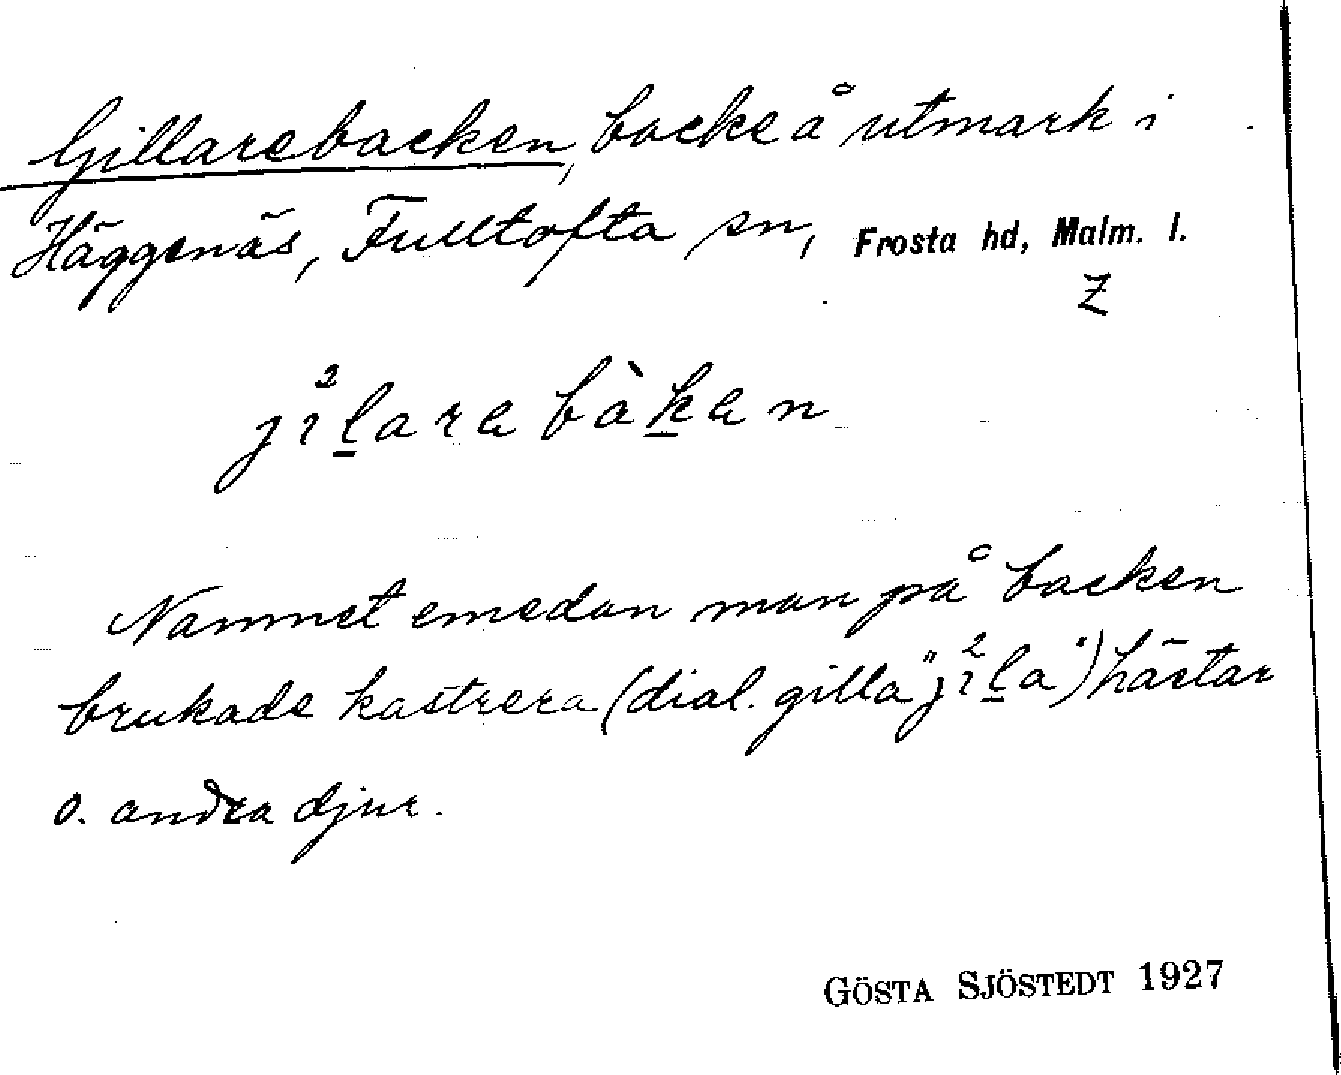 Gillarebacken, backe å utmark i
Häggenäs, Fulltofta sn, Frosta hd, Malm. l.
Z
jı²larabàkan
Namnet emedan man på backen
brukade kastrera (dial. gilla "jı²la") hästar
o. andra djur.
GÖSTA SJÖSTEDT 1927